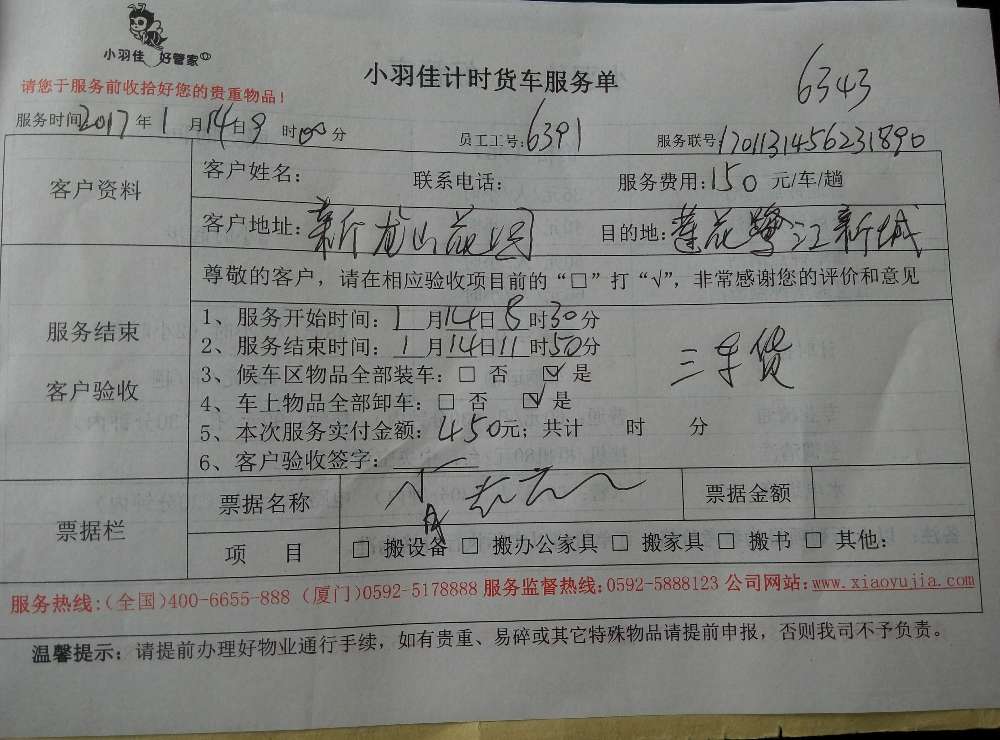 小羽佳 好管家
小羽佳计时货车服务单
6343
请您于服务前收拾好您的贵重物品！
服务时间2017年1月14日9时00分 员工工号：6391 服务联号1701131456231890
客户资料
客户姓名： 联系电话： 服务费用：150元/车/趟
客户地址：新龙山花园 目的地：莲花鹭江新城
尊敬的客户，请在相应验收项目前的“□”打“√”，非常感谢您的评价和意见
服务结束
客户验收
1、服务开始时间：1月14日8时30分
2、服务结束时间：1月14日11时50分
3、候车区物品全部装车：□ 否 ☑ 是
三车货
4、车上物品全部卸车：□ 否 ☑ 是
5、本次服务实付金额：450元；共计 时 分
6、客户验收签字：
票据栏
票据名称 票据金额
项 目 □ 搬设备 □ 搬办公家具 □ 搬家具 □ 搬书 □ 其他：
服务热线：（全国）400-6655-888（厦门）0592-5178888 服务监督热线：0592-5888123 公司网站：www.xiaoyujia.com
温馨提示：请提前办理好物业通行手续，如有贵重、易碎或其它特殊物品请提前申报，否则我司不予负责。